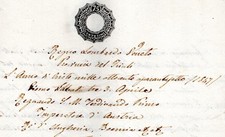 Regno Lombardo Veneto
Provincia del Friuli
L'Anno d'cristo mille ottocento quarantasette (1847)
Giorno Sabato tre d'Aprile
Regnando S. M. Ferdinando Primo
Imperatore d'Austria
Re d'Ungheria, Boemia